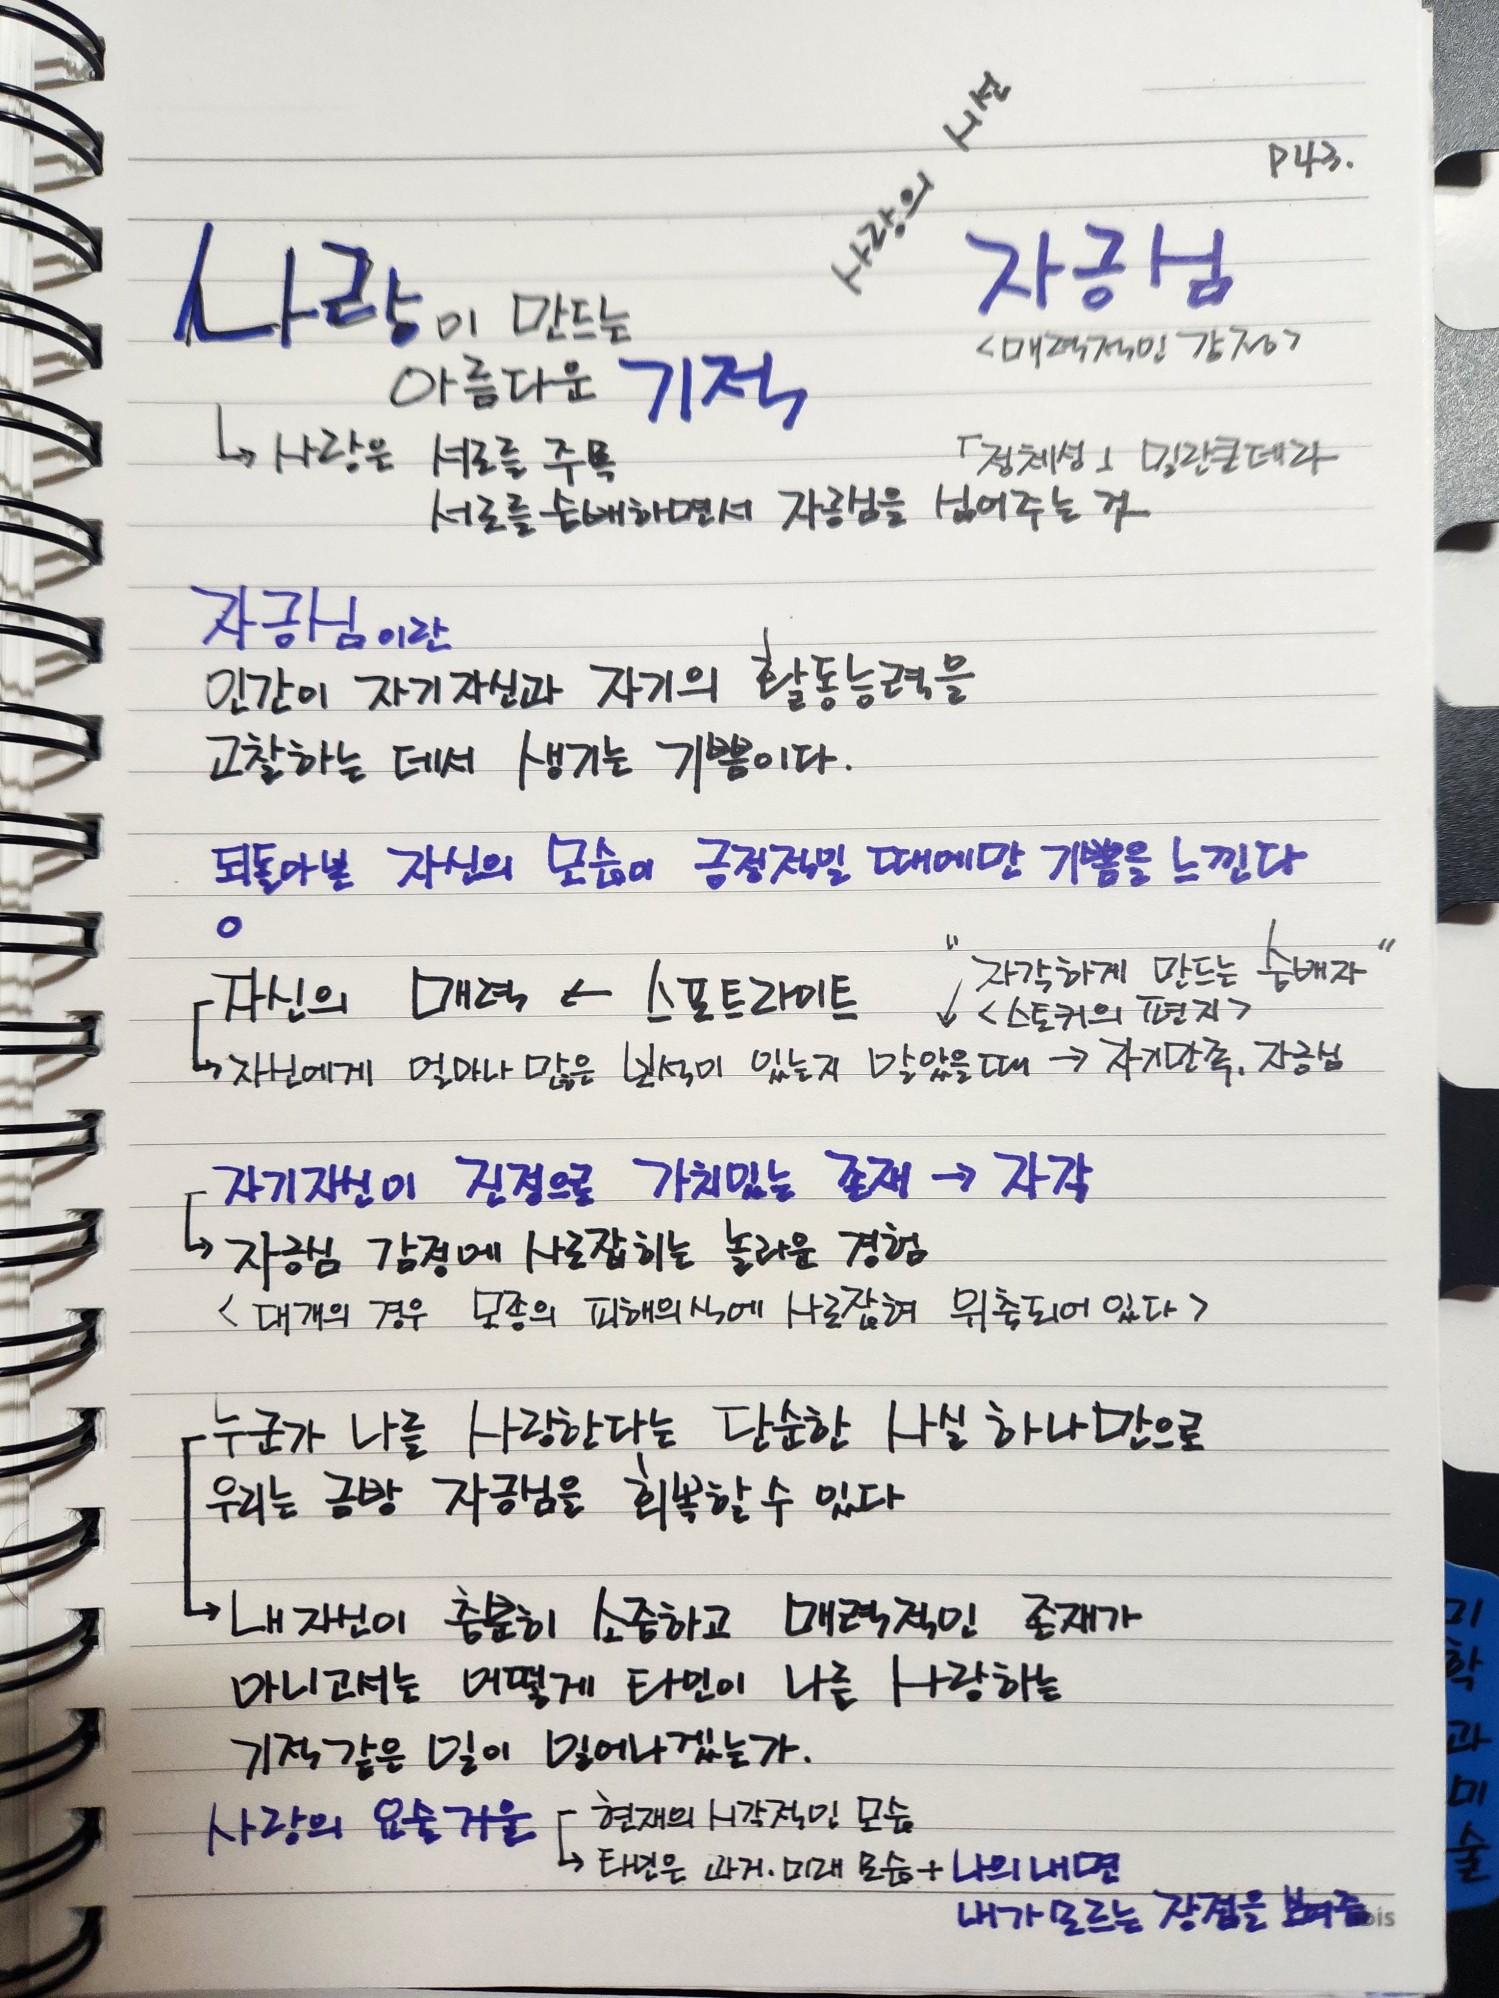 P43.
사랑의 시선
자긍심
<매력적인 감정>
사랑이 만드는
아름다운 기적
↳ 사랑은 서로를 주목
「정체성」 밀란쿤데라
서로를 숭배하면서 자긍심을 심어주는 것
자긍심이란
인간이 자기자신과 자기의 활동능력을
고찰하는 데서 생기는 기쁨이다.
되돌아본 자신의 모습이 긍정적일 때에만 기쁨을 느낀다
"자각하게 만드는 숭배자"
자신의 매력 ← 스포트라이트
↓ <스토커의 편지>
↳ 자신에게 얼마나 많은 보석이 있는지 알았을때 → 자기만족, 자긍심
자기자신이 진정으로 가치있는 존재 → 자각
↳ 자긍심 감정에 사로잡히는 놀라운 경험
<대개의 경우 모종의 피해의식에 사로잡혀 위축되어 있다>
누군가 나를 사랑한다는 단순한 사실 하나만으로
우리는 금방 자긍심을 회복할 수 있다
↳ 내 자신이 충분히 소중하고 매력적인 존재가
아니고서는 어떻게 타인이 나를 사랑하는
기적같은 일이 일어나겠는가.
사랑의 요술거울 현재의 시각적인 모습
↳ 타인은 과거·미래 모습 + 나의 내면
내가 모르는 장점을 보여줌
미학과 미술